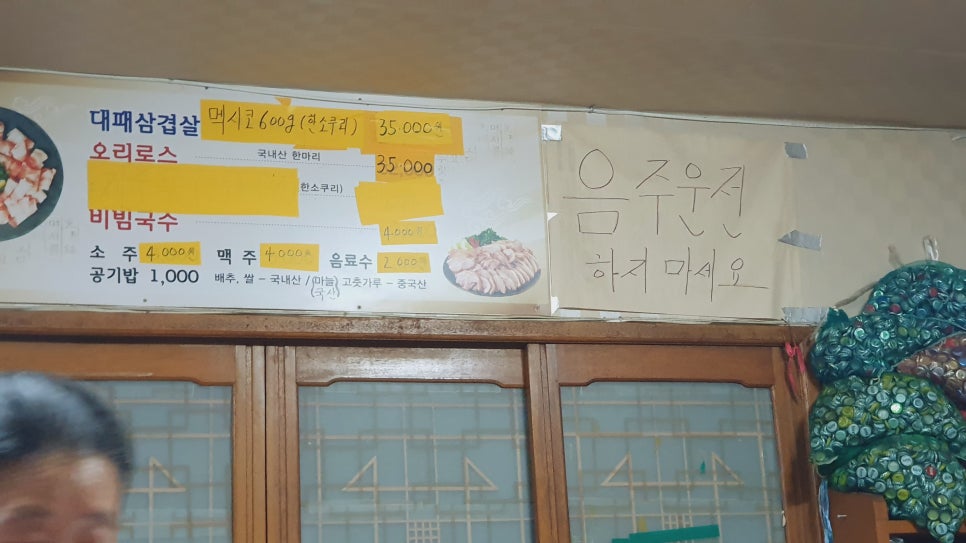 대패삼겹살 멕시코600g(한소쿠리) 35.000원
오리로스 국내산 한마리 35.000
한소쿠리)
비빔국수 4.000원
소 주 4.000원 맥 주 4.000원 음료수 2.000원
공기밥 1,000 배추, 쌀 - 국내산 / (마늘 고춧가루 - 중국산
국산)
음주운전
하지 마세요